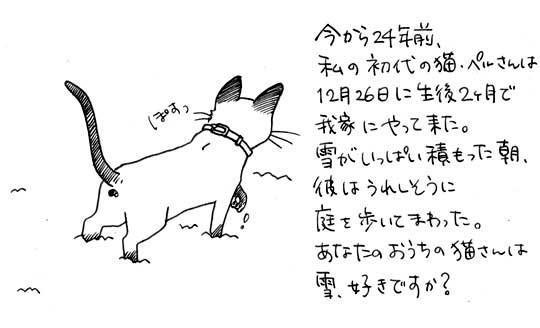 ぱすっ
今から24年前、
私の初代の猫・ペルさんは
12月26日に生後2ヶ月で
我家にやって来た。
雪がいっぱい積もった朝、
彼はうれしそうに
庭を歩いてまわった。
あなたのおうちの猫さんは
雪、好きですか？